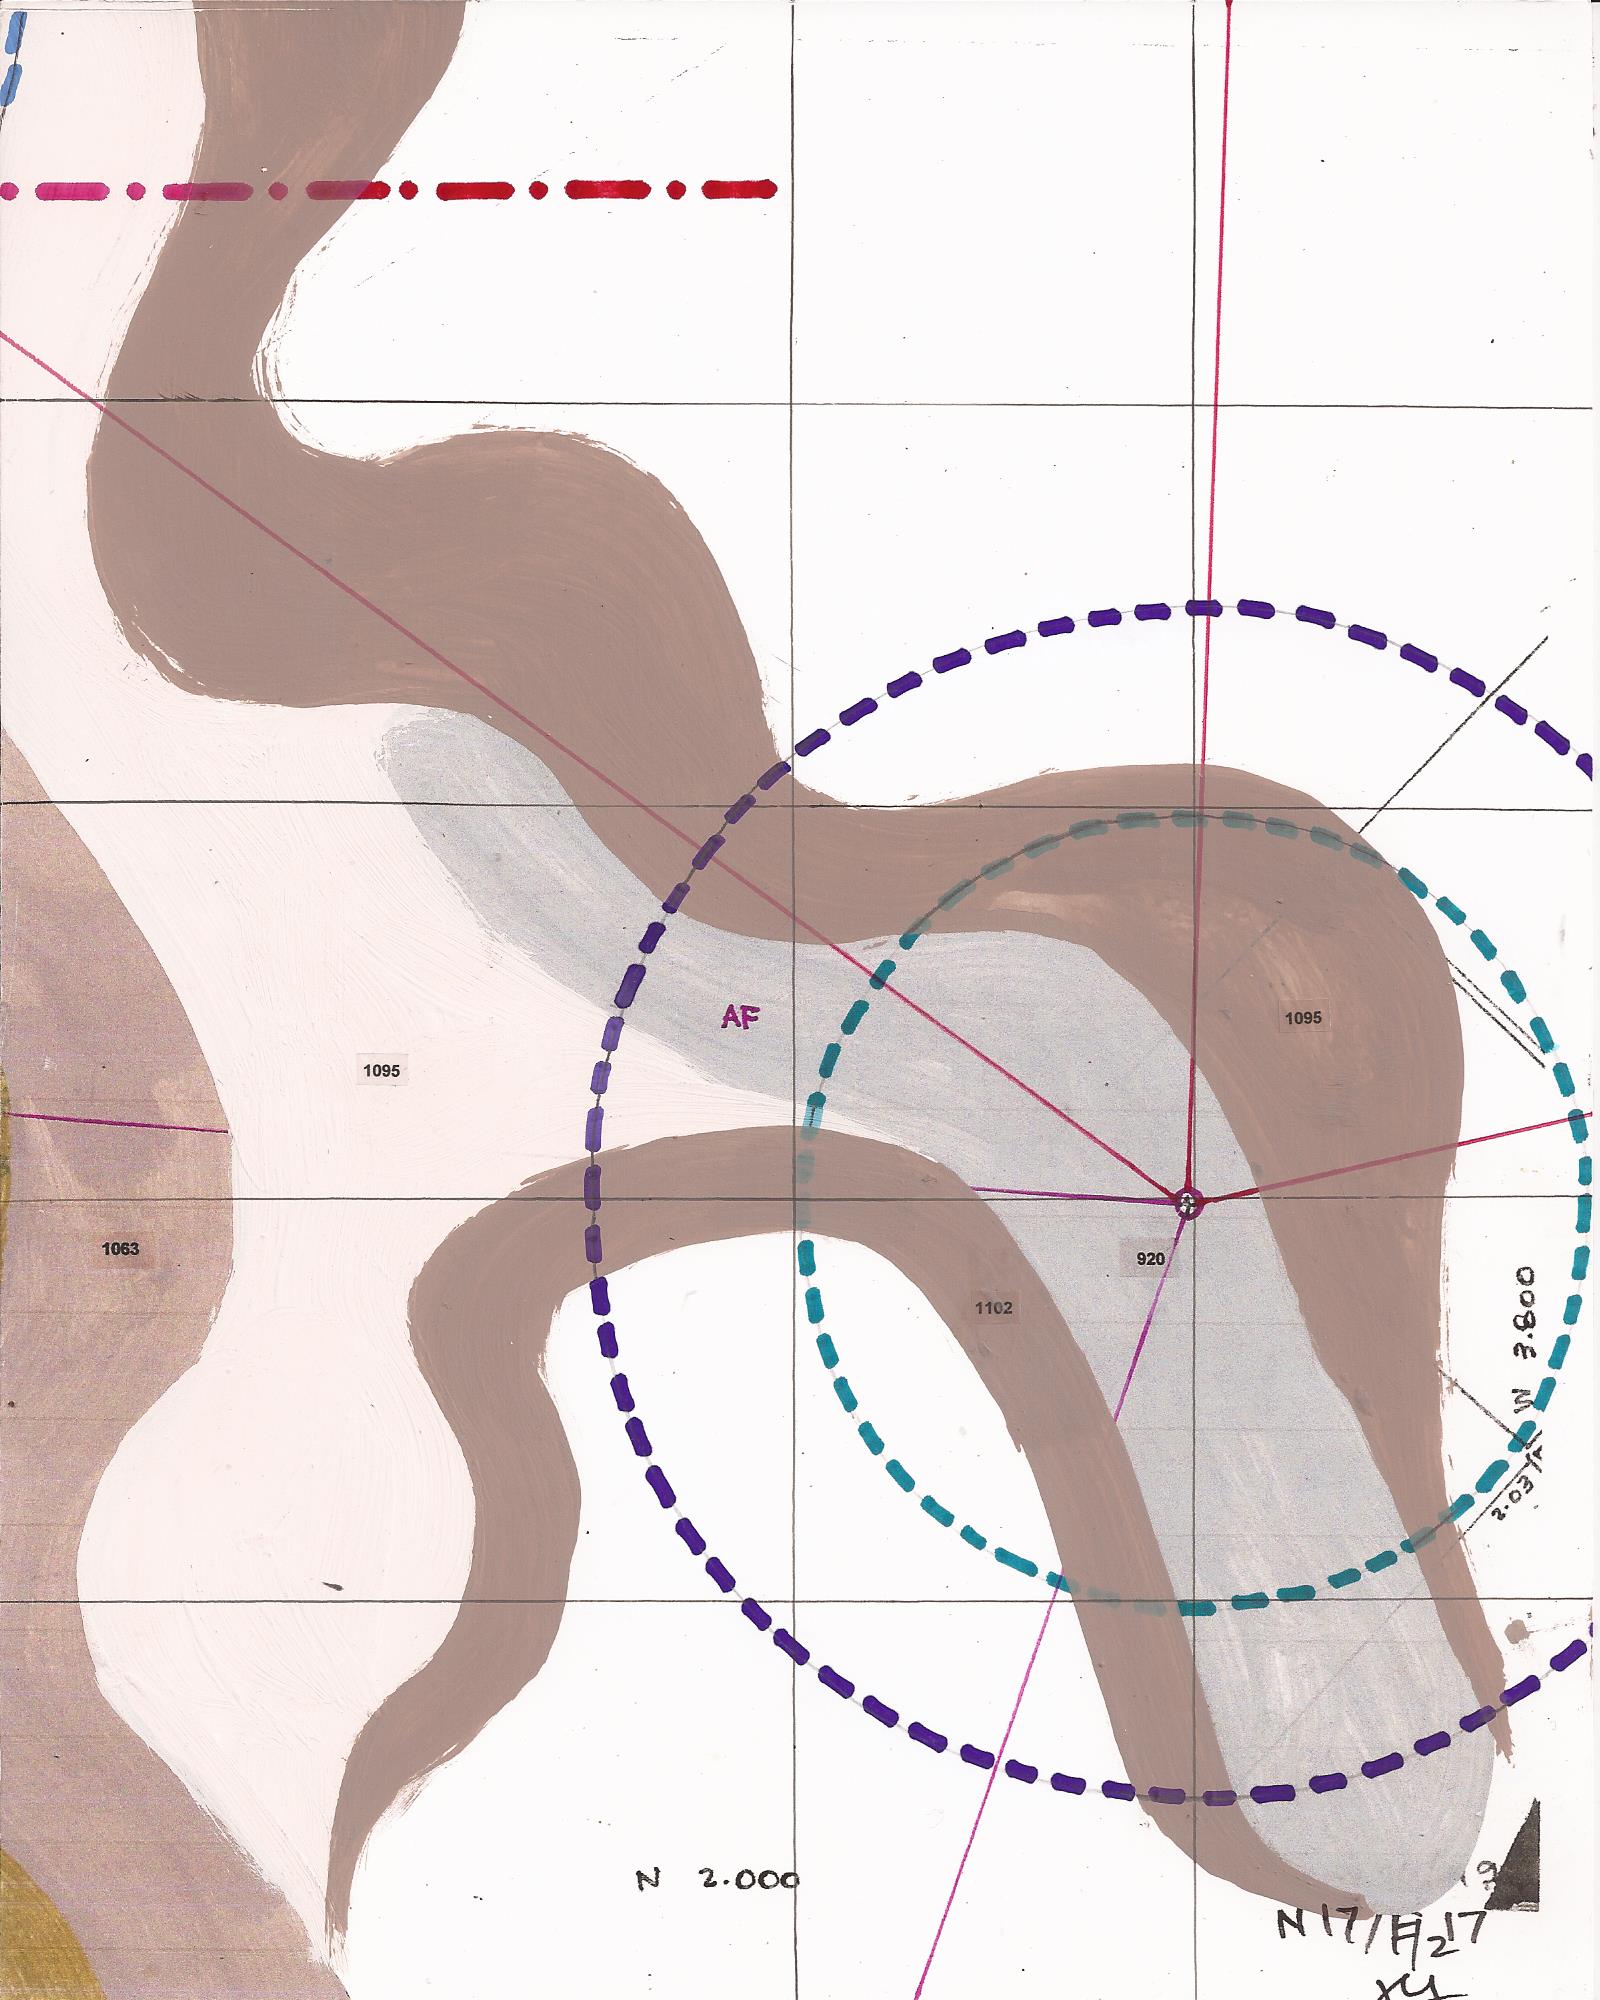 AF
1095
1095
1063
920
1102
W 3.800
2.03
N 2.000
N 17/